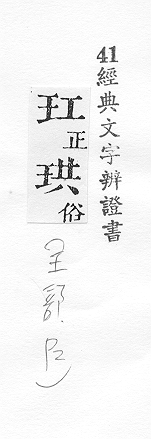 41
經典文字辨證書
玒正
珙俗
王部